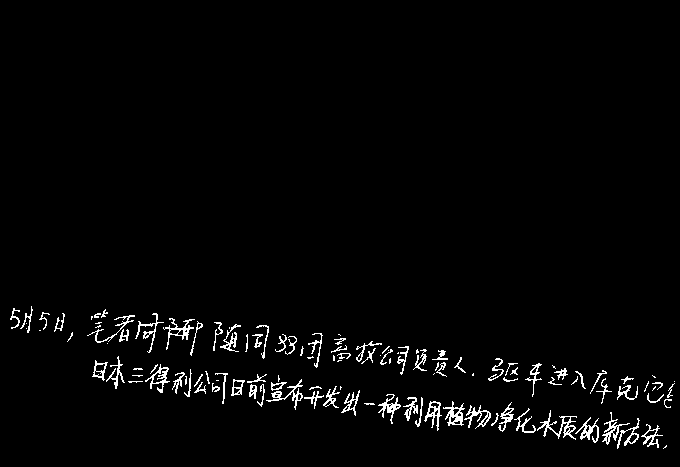 5月5日,笔者同 随同33团畜牧公司负责人.驱车进入库克
日本三得利公司日前宣布开发出一种利用植物净化水质的新方法.